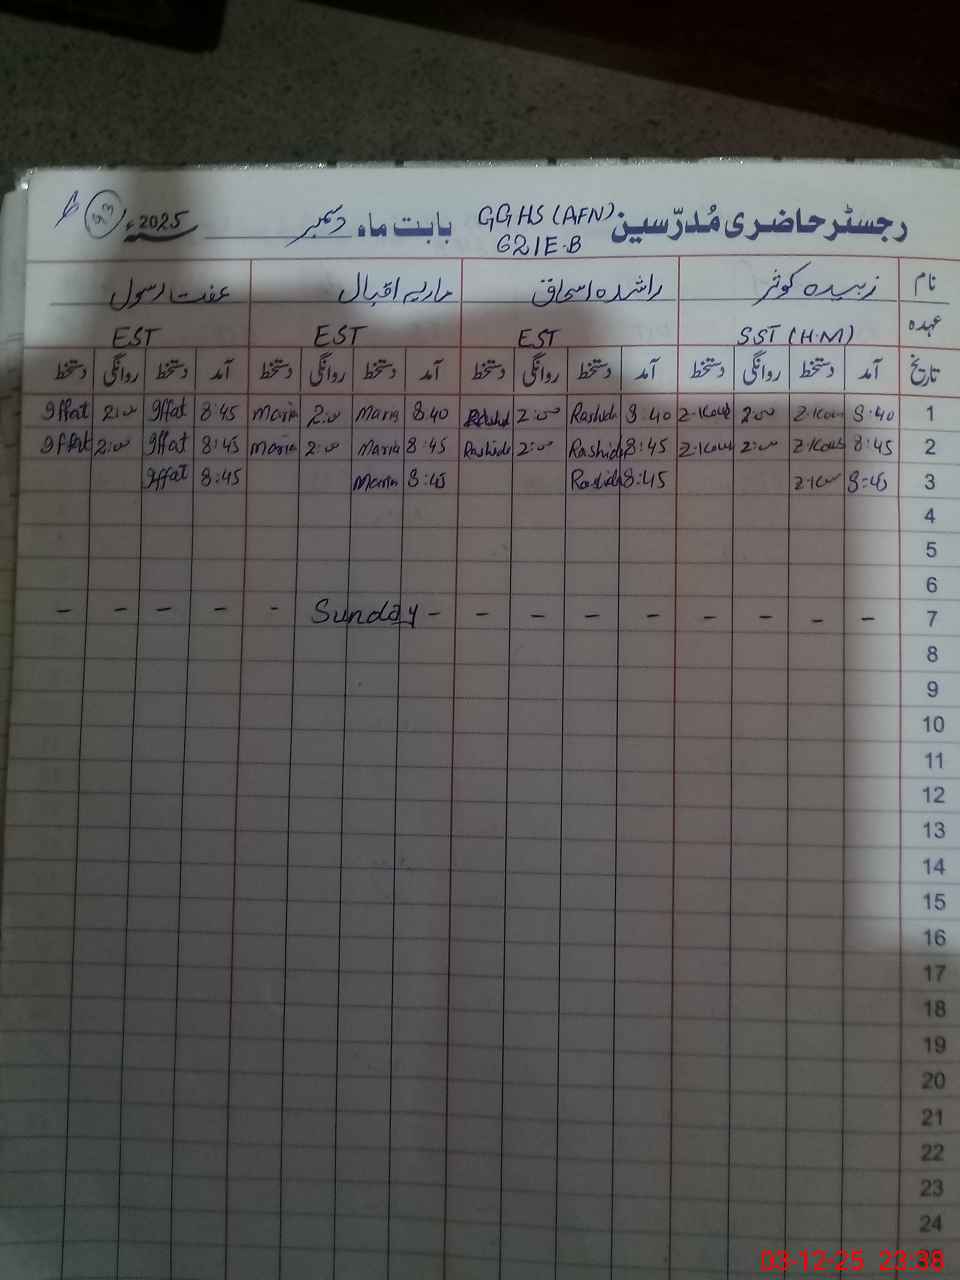 رجسٹر حاضری مُدرّسین GGHS (AFN) 621E.B بابت ماہ دسمبر 2025ء 93
نام زبیدہ کوثر راشدہ اسحاق ماریہ اقبال عفت رسول
عہدہ SST (H.M) EST EST EST
تاریخ آمد دستخط روانگی دستخط آمد دستخط روانگی دستخط آمد دستخط روانگی دستخط آمد دستخط روانگی دستخط
1 8:40 Z.Kou 2:00 Z.Kou 8:40 Rashida 2:00 Rashid 8:40 Maria 2:00 Maria 8:45 Iffat 2:00 Iffat
2 8:45 Z.Kous 2:00 Z.Kou 8:45 Rashida 2:00 Rashida 8:45 Maria 2:00 Maria 8:45 Iffat 2:00 Iffat
3 8:45 8:45 Rashida 8:45 Maria 8:45 Iffat
4
5
6
7 - - - - - - - - - Sunday - - - - -
8
9
10
11
12
13
14
15
16
17
18
19
20
21
22
23
24
03-12-25 23:38